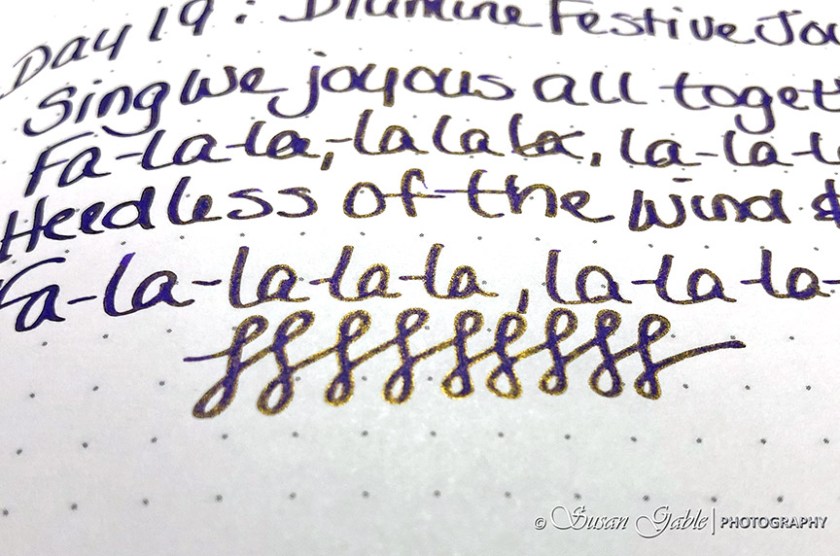 Day 19: Diamine Festive Jo
Sing we joyous all toget
Fa-la-la, -la la la, la-la-l
Heedless of the wind &
Fa-la-la-la-la, la-la-la-
© Susan Gable | PHOTOGRAPHY